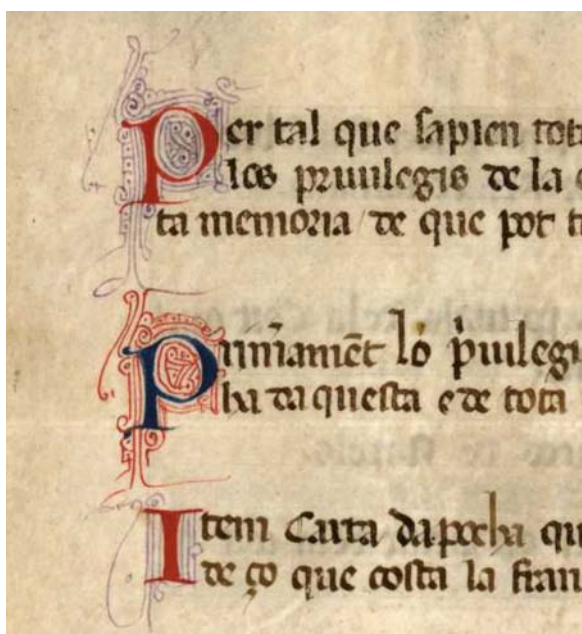 Per tal que ſapien tota
los priuilegis de la
ta memoria de que pot
Primament lo priuilegi
ha daqueſta e de tota
Item Carta dapocha qu
de ço que coſta la fran